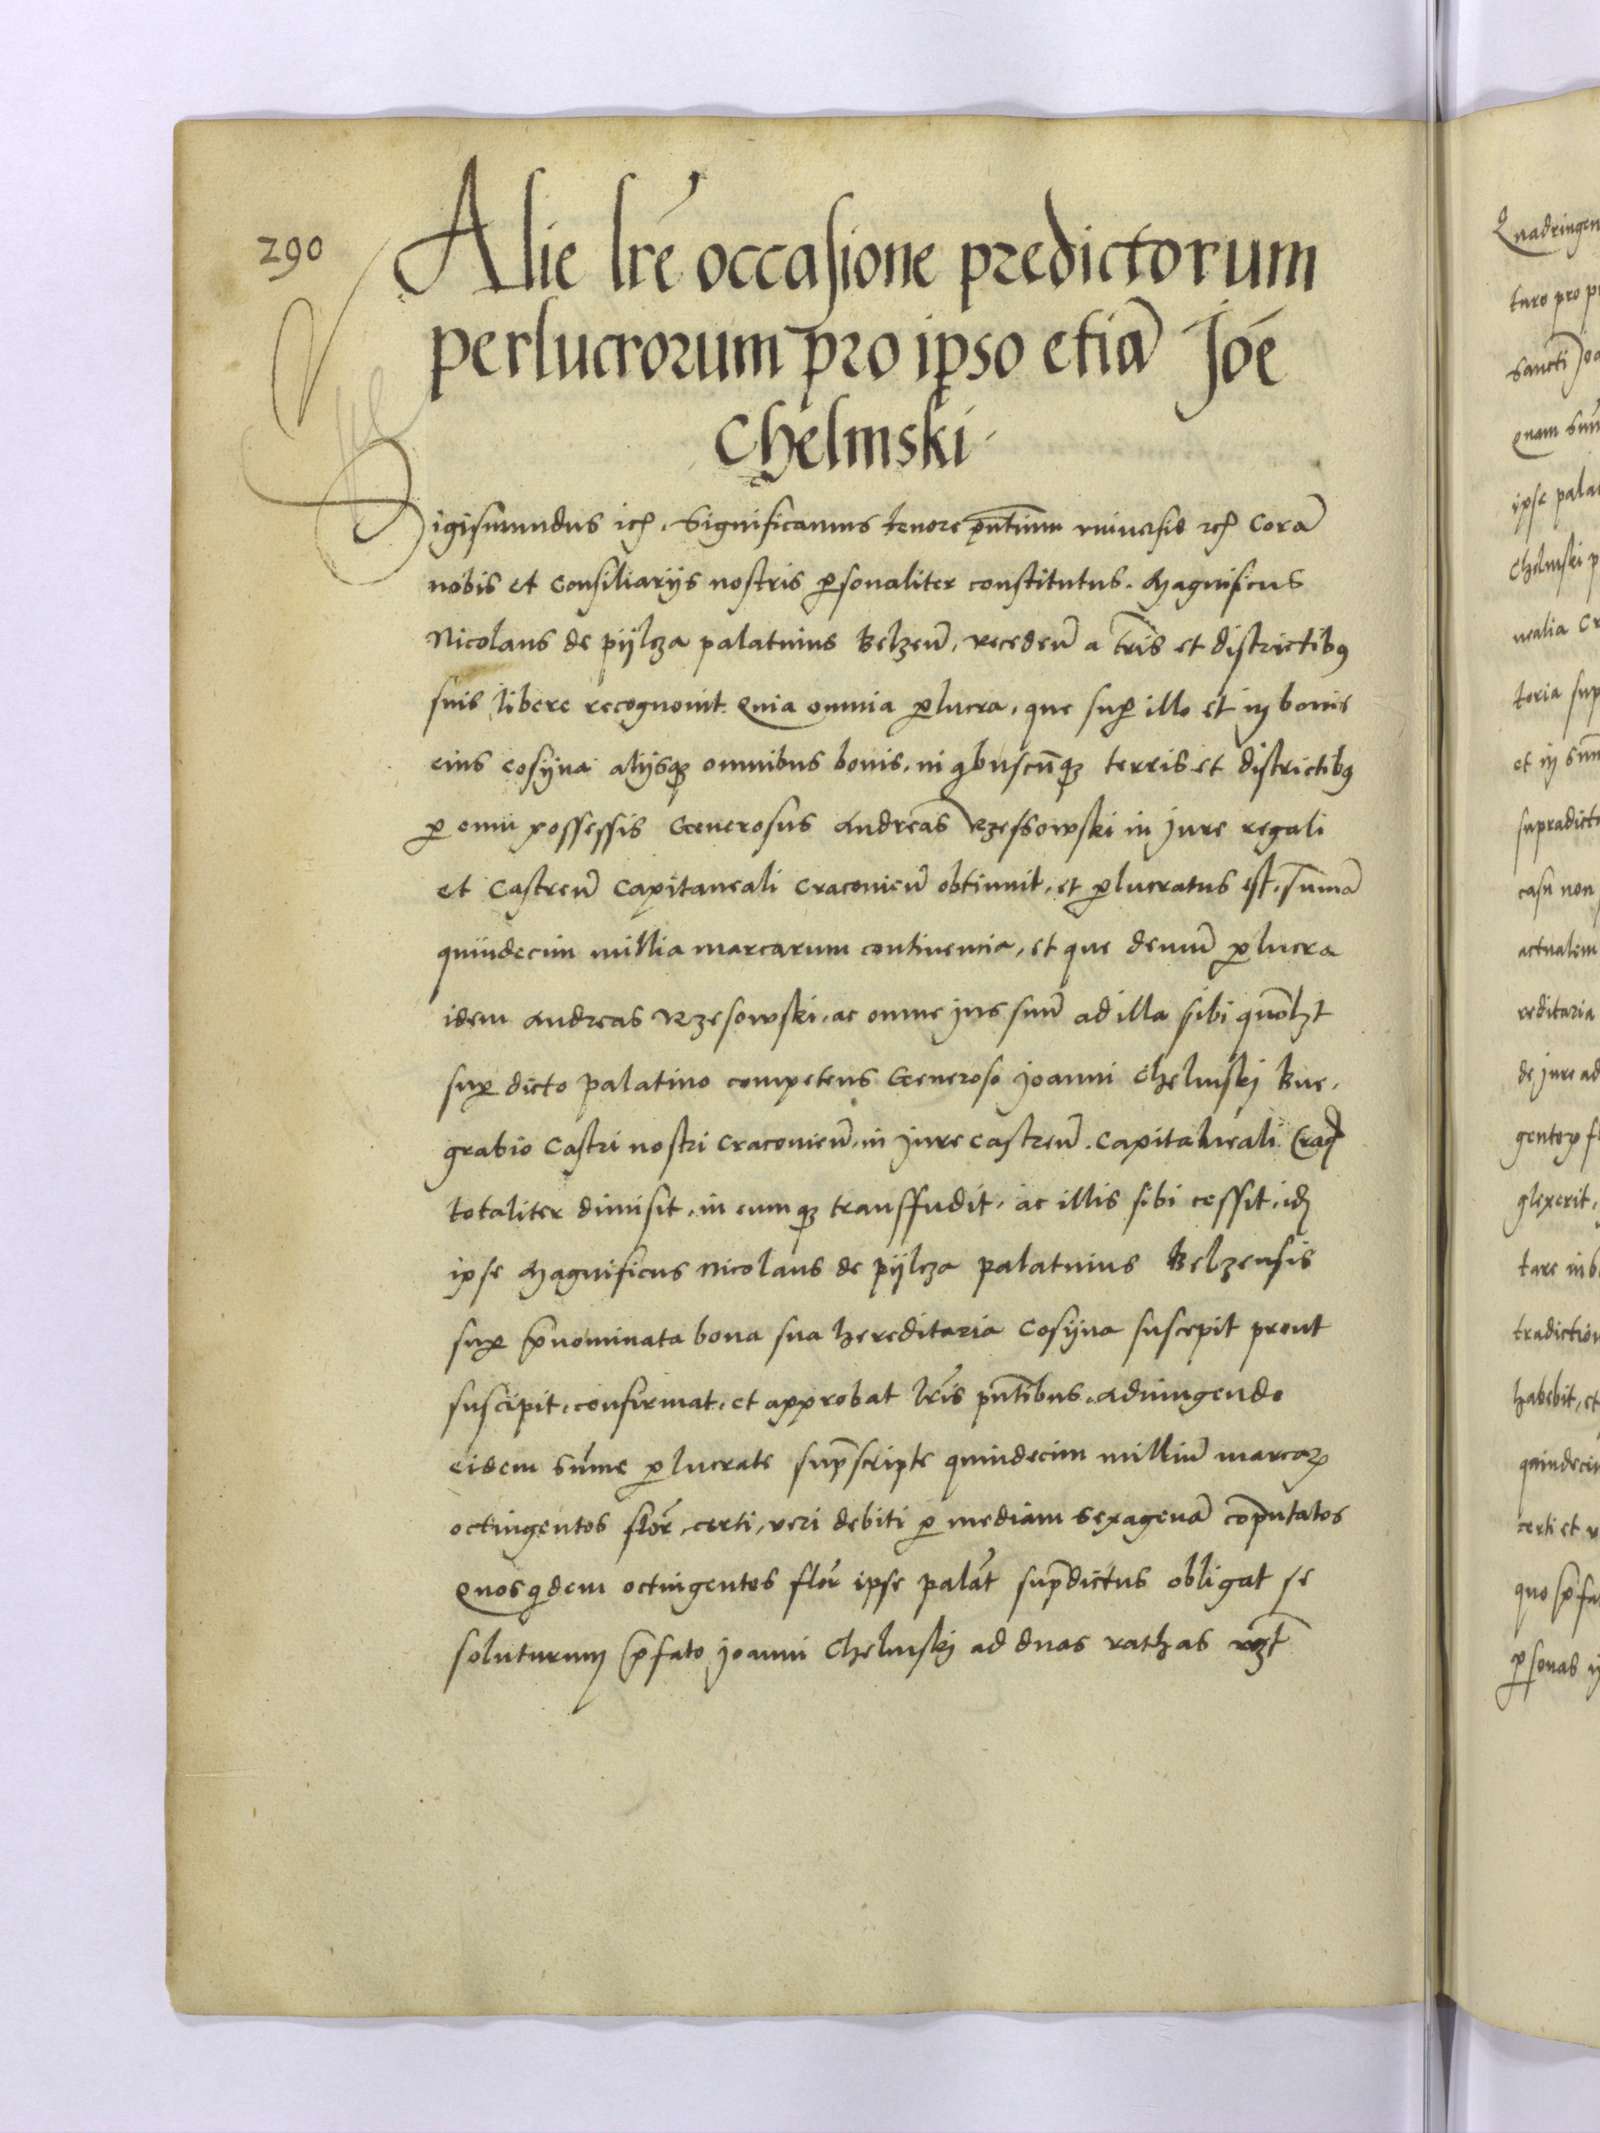 290
Alie lrē occasione predictorum
perlucrorum pro ipso etiā Joē
Chelmski
Sigismundus etc. Significamus tenore pntium universis etc Corā
nobis et Consiliarijs nostris personaliter constitutus. Magnificus
Nicolaus de pijlcza palatinus Belzeñ, recedeñ a tris et districtibus
suis libere recognovit. Quia omnia perlucra, que super illo et in bonis
eius cosijna alijsque omnibus bonis, in quibuscunque terris et districtibus
per eum possessis Generosus Andreas Rzessowski in jure regali
et Castreñ Capitaneali Cracovieñ obtinuit, et perlucratus est, sumā
quindecim millia marcarum continencia, et que demum perlucra
idem Andreas Rzesowski, ac omne jus suū ad illa sibi quolzt
super dicto palatino competens Generoso Joanni Chelmskj Bur-
grabio Castri nostri Cracovieñ, in jure castreñ. Capitaneali Crac
totaliter dimisit, in eumque transffudit, ac illis sibi cessit, id
ipse Magnificus Nicolaus de pijlcza palatinus Belzensis
super prenominata bona sua hereditaria Cosijna suscepit prout
suscipit, confirmat, et approbat lris pntibus, Adiungendo
eidem Sume perlucrate suprascripte quindecim milliū marcarum
octingentos flor, certi, veri debiti per mediam sexagenā computatos
Quosquidem octingentos flor ipse palat supradictus obligat se
soluturum prefato Joanni Chelmskj ad duas rathas vizt
Quadringen
turo pro pr
Sancti Joa
Quam Sum
ipse palat
Chelmski p
nealia Cr
toria sup
et in Sum
supradicto
casu non
actualem
reditaria
de jure ad
glexerit,
tare in b
tradiction
habebit, et
quindecim
certi et v
quo prefa
personas i